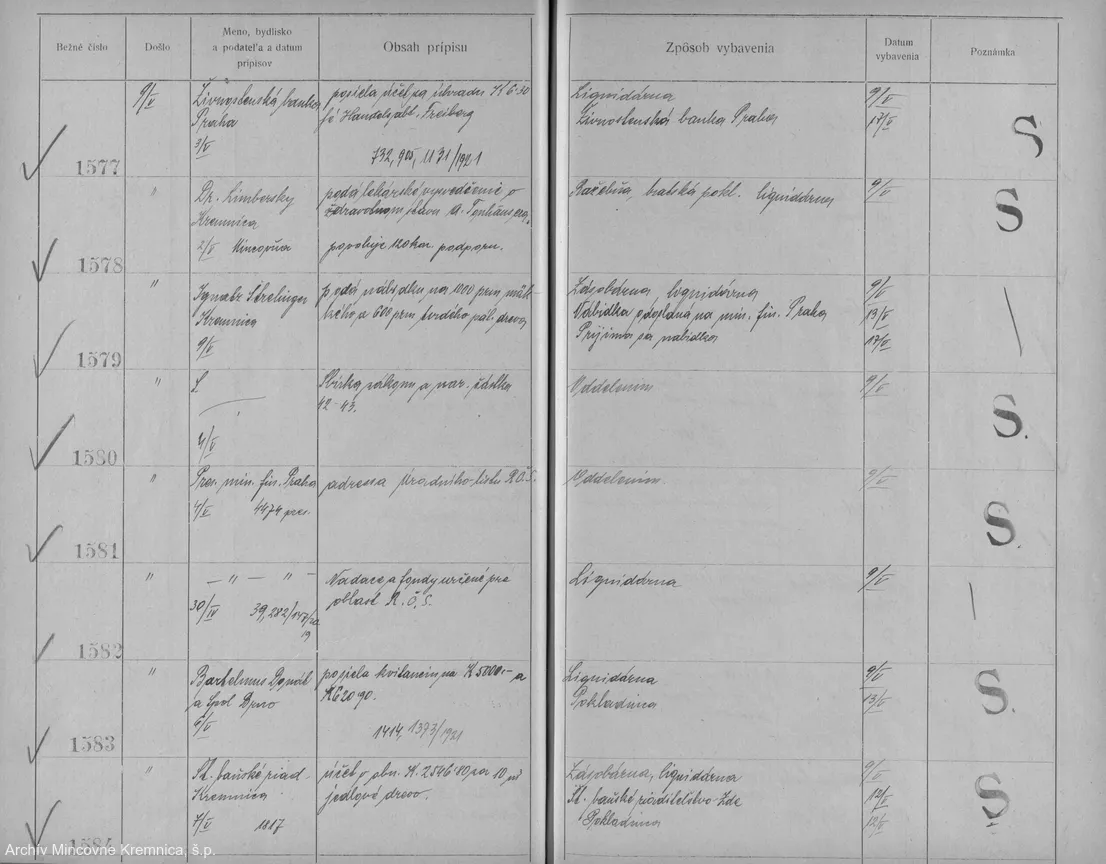 Bežné číslo
Došlo
Meno, bydlisko
a podateľa a datum
prípisov
Obsah prípisu
Zpôsob vybavenia
Datum
vybavenia
Poznámka
9/V
Živnostenská banka
Praha
3/V
posiela účel na úhradu
Handelsabt. Freiberg
732, 905, 1131/1921
Liquidárna
Živnostenská banka Praha
9/V
17/V
S
1577
"
Dr. Limborsky
Kremnica
2/V Mincovňa
podá lekárské vysvedčenie o
zdravotnom stavu
povoluje podporu.
pokl. liquidárna
9/V
S
1578
"
Ignatz Strelinger
Kremnica
9/V
podá nabidku na 1000 prm
a 600 prm tvrdého pal. dreva
Zásobárna, liquidárna
Nabidka odoslaná na min. fin. Praha
Prijíma sa nabidka
9/V
13/V
17/V
1579
"
4/V
Sbírka zákonov a nar. částka
42-43.
Oddelenim
9/V
S.
1580
"
Pres. min. fin. Praha
4/V 4474 pres.
adressa úradného listu R.Č.S.
Oddelenim
9/V
S.
1581
"
— " — " —
30/IV 39,282/
19
Nadace a fondy určené pre
oblast R.Č.S.
Liquidárna
9/V
1582
"
Bartelmus Ignát
a spol Brno
6/V
posiela kvitanciu na K 5000.- a
K 620 90.
1414, 1393/1921
Liquidárna
Pokladnica
9/V
13/V
S.
1583
"
Št. banské riad-
Kremnica
7/V 1817
účet o obn. K. 2546 80 za 10 m³
jedlové drevo.
Zásobárna, liquidárna
Št. banské riaditelstvo-Zde
Pokladnica
9/V
12/V
12/V
S.
1584
Archív Mincovne Kremnica, š.p.